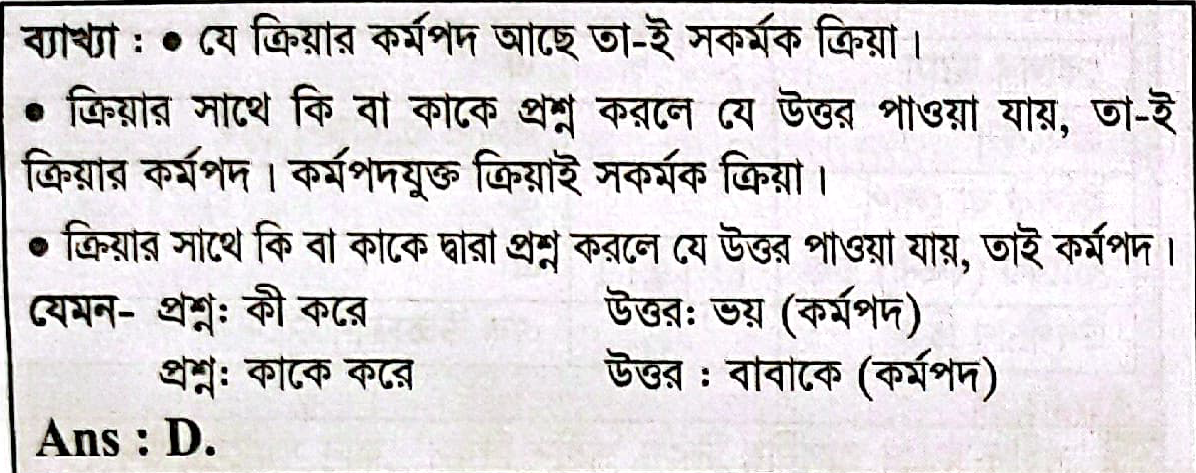 ব্যাখ্যা : ● যে ক্রিয়ার কর্মপদ আছে তা-ই সকর্মক ক্রিয়া।
● ক্রিয়ার সাথে কি বা কাকে প্রশ্ন করলে যে উত্তর পাওয়া যায়, তা-ই
ক্রিয়ার কর্মপদ। কর্মপদযুক্ত ক্রিয়াই সকর্মক ক্রিয়া।
● ক্রিয়ার সাথে কি বা কাকে দ্বারা প্রশ্ন করলে যে উত্তর পাওয়া যায়, তাই কর্মপদ।
যেমন- প্রশ্ন: কী করে উত্তর: ভয় (কর্মপদ)
প্রশ্ন: কাকে করে উত্তর : বাবাকে (কর্মপদ)
Ans : D.